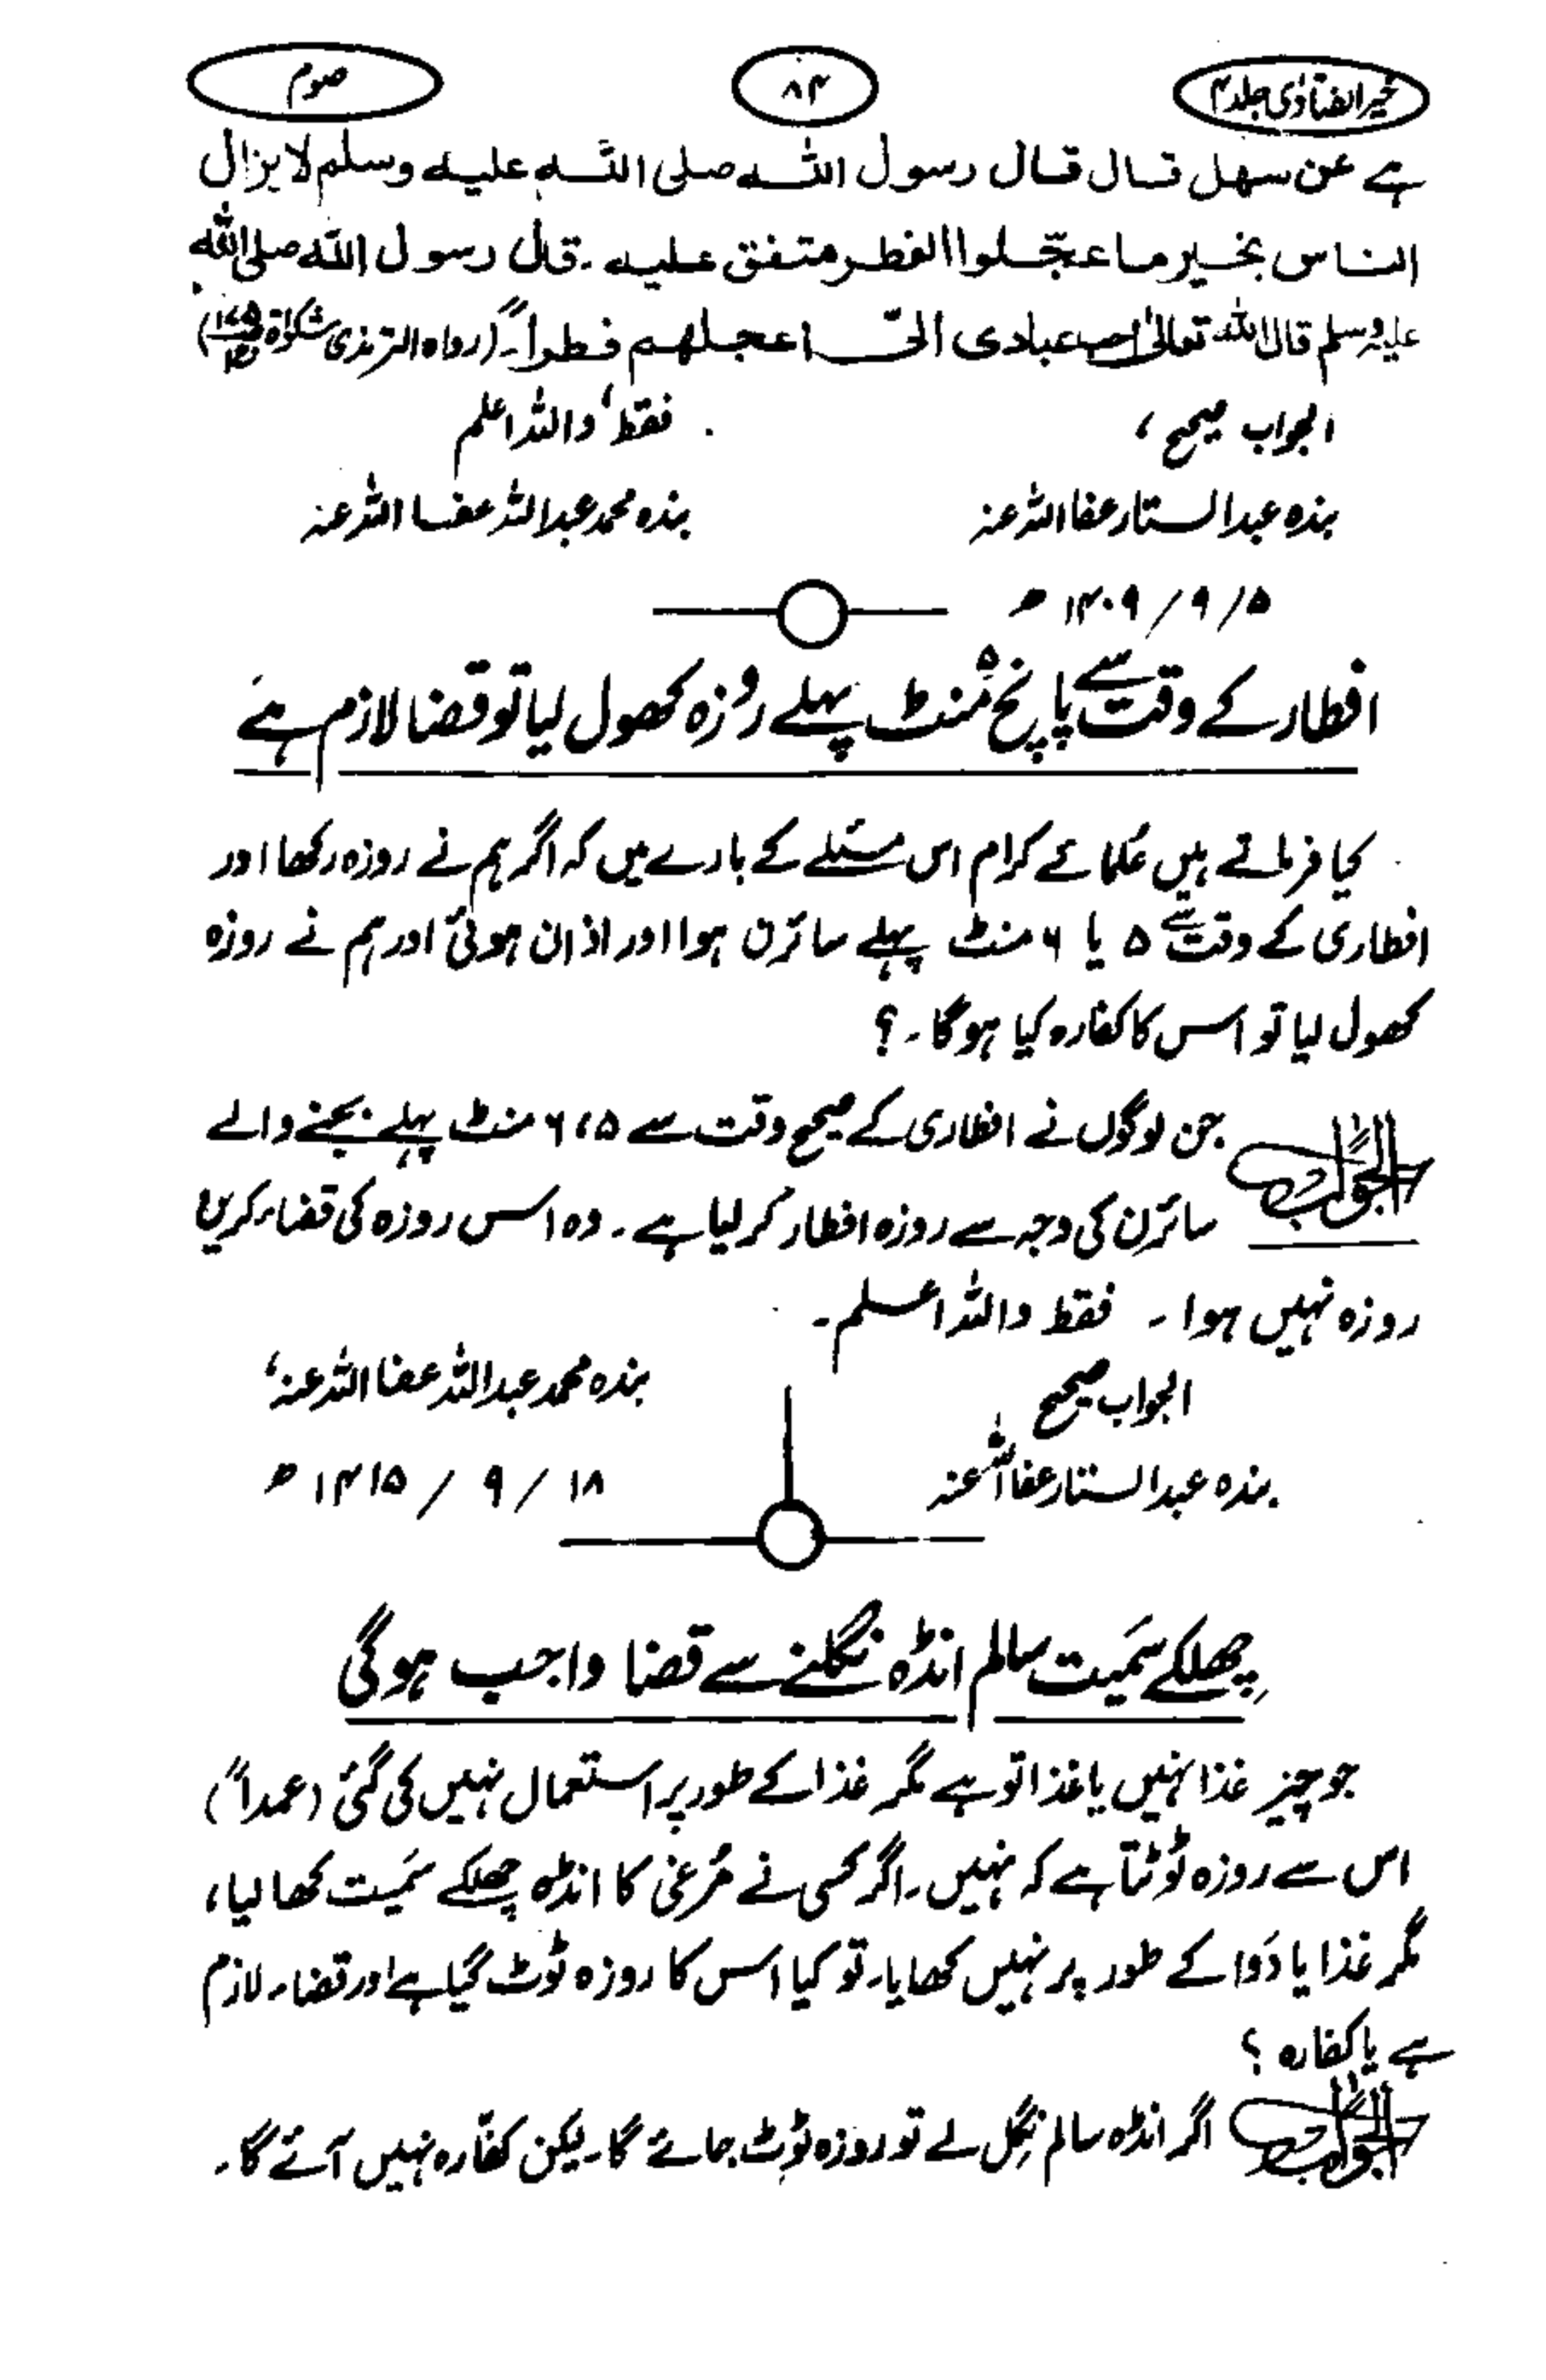 خیر الفتاویٰ جلد ۴
۸۴
صوم
ہے عن سهل قال قال رسول اللہ صلی اللہ علیہ وسلم لا یزال
الناس بخیر ما عجّلوا الفطر متفق علیہ ۔ قال رسول اللہ صلی اللہ
علیہ وسلم قال اللہ تعالیٰ احب عبادی الیّ اعجلهم فطراً۔ (رواہ الترمذی مشکوٰۃ ۱۷۵)
الجواب صحیح ،
فقط، واللہ اعلم
بندہ عبدالستار عفا اللہ عنہ
بندہ محمد عبداللہ عفا اللہ عنہ
۵ / ۹ / ۱۴۰۹ ھ
افطار کے وقت سے پانچ ۵ منٹ پہلے روزہ کھول لیا تو قضا لازم ہے
کیا فرماتے ہیں علمائے کرام اس مسئلے کے بارے میں کہ اگر ہم نے روزہ رکھا اور
افطاری کے وقت سے ۵ یا ۶ منٹ پہلے سائرن ہوا اور اذان ہوئی اور ہم نے روزہ
کھول لیا تو اس کا کفارہ کیا ہوگا ۔ ؟
الجواب جن لوگوں نے افطاری کے صحیح وقت سے ۵، ۶ منٹ پہلے بجنے والے
سائرن کی وجہ سے روزہ افطار کر لیا ہے ۔ وہ اس روزہ کی قضاء کریں
روزہ نہیں ہوا ۔ فقط واللہ اعلم ۔
الجواب صحیح
بندہ محمد عبداللہ عفا اللہ عنہ،
بندہ عبدالستار عفا اللہ عنہ
۱۸ / ۹ / ۱۴۱۵ ھ
چھلکے سَمیت سالم انڈہ نگلنے سے قضا واجب ہوگی
جو چیز غذا نہیں یا غذا تو ہے مگر غذا کے طور پر استعمال نہیں کی گئی (عمداً)
اس سے روزہ ٹوٹتا ہے کہ نہیں ۔ اگر کسی نے مُرغی کا انڈہ چھلکے سَمیت کھا لیا ،
مگر غذا یا دَوا کے طور پر نہیں کھایا۔ تو کیا اس کا روزہ ٹوٹ گیا ہے اور قضاء لازم
ہے یا کفارہ ؟
الجواب اگر انڈہ سالم نِگل لے تو روزہ ٹوٹ جائے گا۔ لیکن کفّارہ نہیں آئے گا ۔